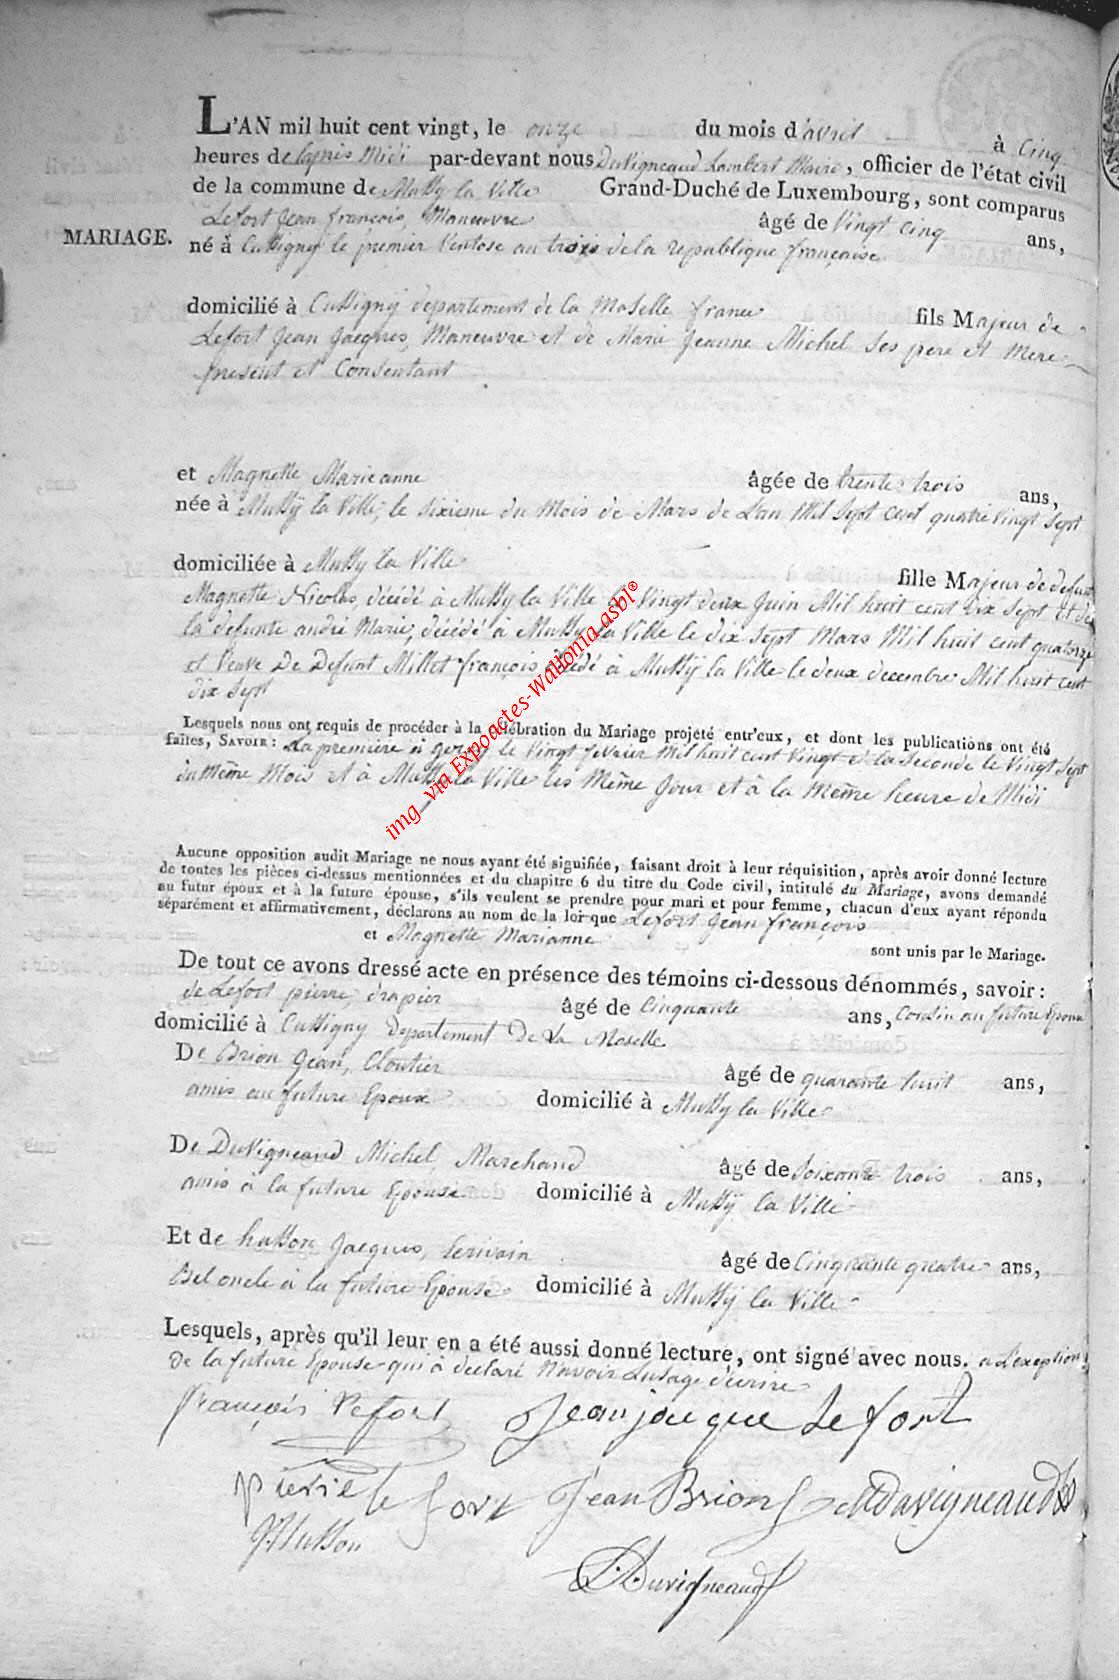 L'AN mil huit cent vingt, le onze du mois d'avril à Cinq
heures de l'apres Midi par-devant nous Duvigneaud Lambert Maire, officier de l'état civil
de la commune de Mussy la Ville Grand-Duché de Luxembourg, sont comparus
Lefort Jean françois, Maneuvre âgé de Vingt Cinq ans,
MARIAGE.
né à Cussigny le premier Ventose an trois de la republique française
domicilié à Cussigny departement de la Moselle france fils Majeur de
Lefort Jean Jacques, Maneuvre et de Marie Jeanne Michel ses pere et Mere
present et Consentant
et Magnette Marieanne âgée de trente trois ans,
née à Mussÿ la Ville, le sixieme du Mois de Mars de Lan Mil Sept cent quatre Vingt Sept
domiciliée à Mussy la Ville fille Majeur de defunt
Magnette Nicolas, décédé à Mussy la Ville le Vingt deux Juin Mil huit cent dix Sept et de
la defunte andré Marie, décédé à Mussy la Ville le dix Sept Mars Mil huit cent quatorze
et Veuve De Defunt Millet françois décédé à Mussÿ la Ville le deux decembre Mil huit cent
dix Sept
Lesquels nous ont requis de procéder à la célébration du Mariage projeté entr'eux, et dont les publications ont été
faites, SAVOIR: La premiere à le Vingt fevrier Mil huit cent Vingt & la Seconde le Vingt Sept
du Même Mois et à Mussy la Ville les Même Jour et à la Même heure de Midi
Aucune opposition audit Mariage ne nous ayant été signifiée, faisant droit à leur réquisition, après avoir donné lecture
de toutes les pièces ci-dessus mentionnées et du chapitre 6 du titre du Code civil, intitulé du Mariage, avons demandé
au futur époux et à la future épouse, s'ils veulent se prendre pour mari et pour femme, chacun d'eux ayant répondu
séparément et affirmativement, déclarons au nom de la loi que Lefort Jean françois
et Magnette Marianne sont unis par le Mariage.
De tout ce avons dressé acte en présence des témoins ci-dessous dénommés, savoir:
de Lefort pierre, drapier âgé de Cinquante ans, Cousin au future Epoux
domicilié à Cussigny Departement De La Moselle
De Brion Jean, Cloutier âgé de quarante huit ans,
amis au future Epoux domicilié à Mussy la Ville
De Duvigneaud Michel, Marchand âgé de Soixante trois ans,
amis à la future Epouse domicilié à Mussÿ la Ville
Et de husson Jacques, Ecrivain âgé de Cinquante quatre ans,
Bel oncle à la future Epouse domicilié à Mussÿ la Ville
Lesquels, après qu'il leur en a été aussi donné lecture, ont signé avec nous. a L'exception
de la future Epouse qui à declaré N'avoir Lusage d'ecrire
françois lefort Jean jacque Le fort
pierre le fort Jean Brion MDuvigneaud
J Husson
L Duvigneaud
img_via Expoactes-Wallonia.asbl®